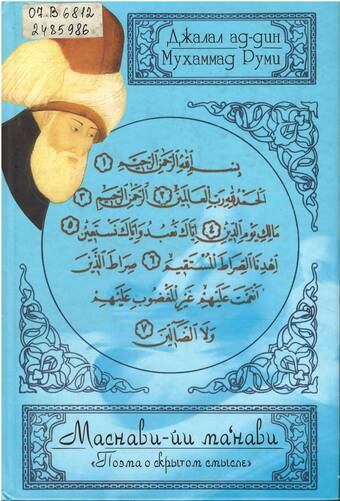 07.В 6812
2485986
Джалал ад-дин
Мухаммад Руми
بِسْمِ اللهِ الرَّحْمٰنِ الرَّحِيمِ ١
اَلْحَمْدُ لِلّٰهِ رَبِّ الْعَالَمِينَ ٢ اَلرَّحْمٰنِ الرَّحِيمِ ٣
مَالِكِ يَوْمِ الدِّينِ ٤ إِيَّاكَ نَعْبُدُ وَإِيَّاكَ نَسْتَعِينُ ٥
اِهْدِنَا الصِّرَاطَ الْمُسْتَقِيمَ ٦ صِرَاطَ الَّذِينَ
أَنْعَمْتَ عَلَيْهِمْ غَيْرِ الْمَغْضُوبِ عَلَيْهِمْ
وَلَا الضَّالِّينَ ٧
Маснави-йи ма'нави
«Поэма о скрытом смысле»